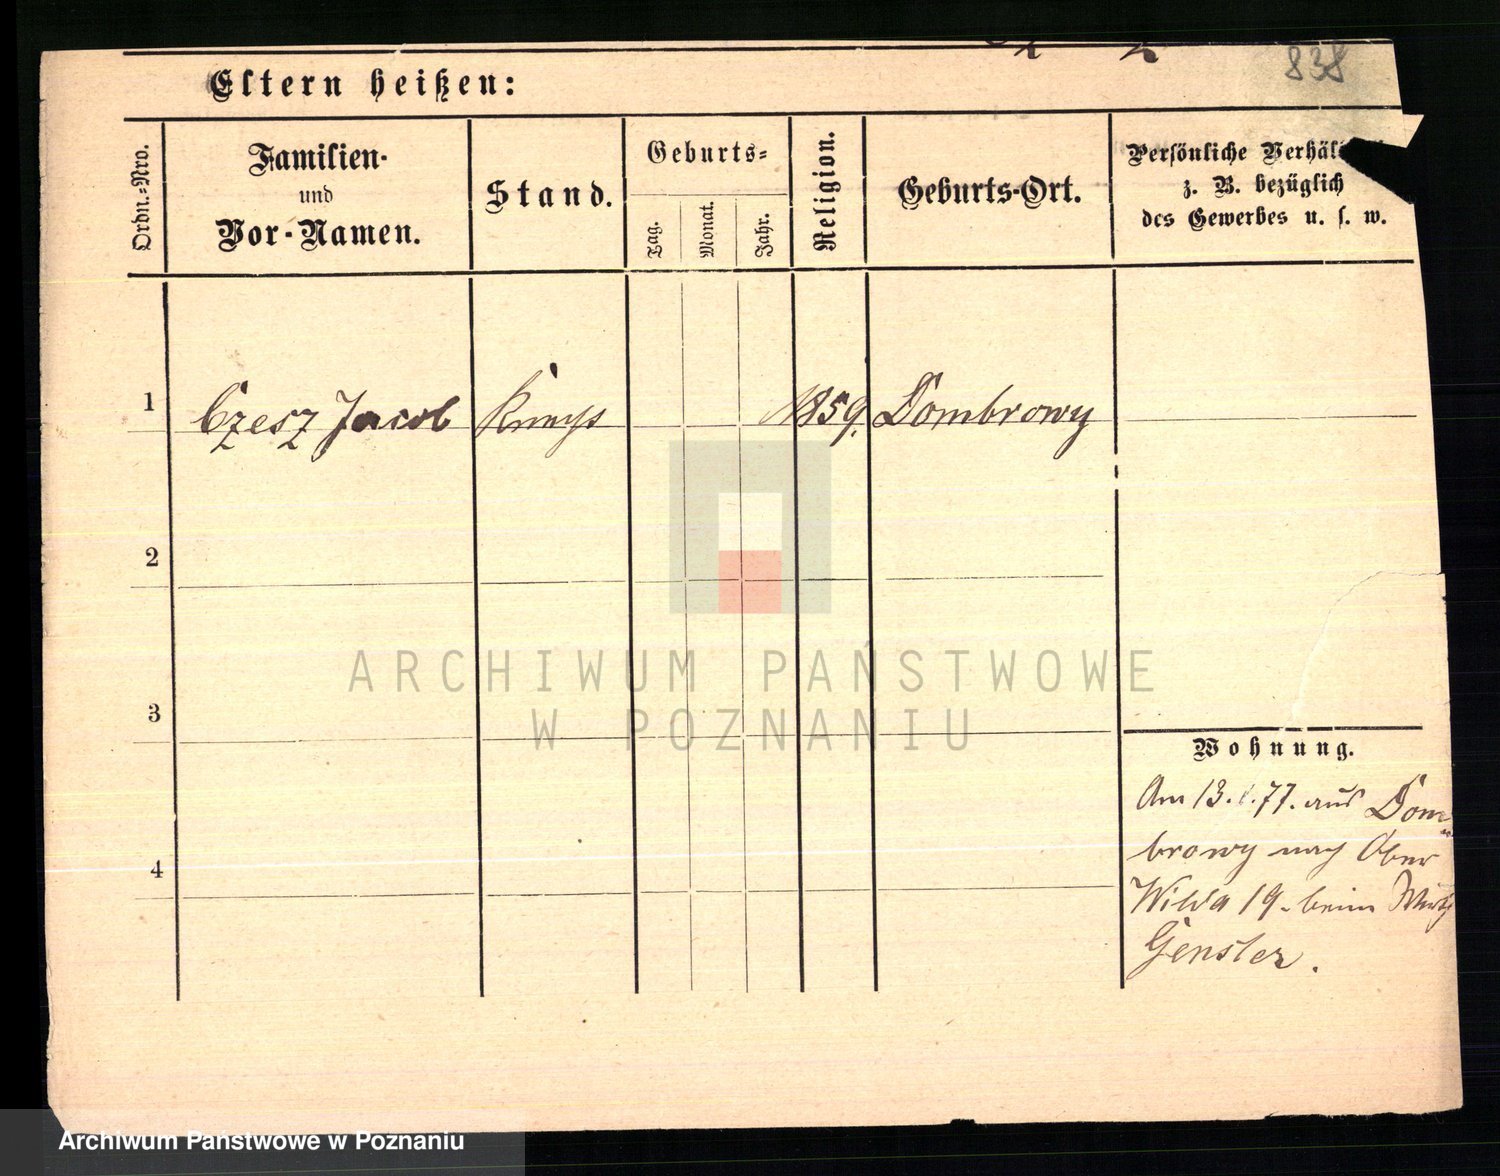 838
Eltern heißen:
Ordn.-Nro.
Familien-
und
Vor-Namen.
Stand.
Geburts-
Tag.
Monat.
Jahr.
Religion.
Geburts-Ort.
Persönliche Verhäl
z. B. bezüglich
des Gewerbes u. s. w.
1
Czesz Jacob
Knecht
1859.
Dombrowy
2
3
4
Wohnung.
Am 13. 77. aus Dom-
browy nach Ober
Wilda 19. beim Wirth
Gensler.
ARCHIWUM PAŃSTWOWE
W POZNANIU
Archiwum Państwowe w Poznaniu